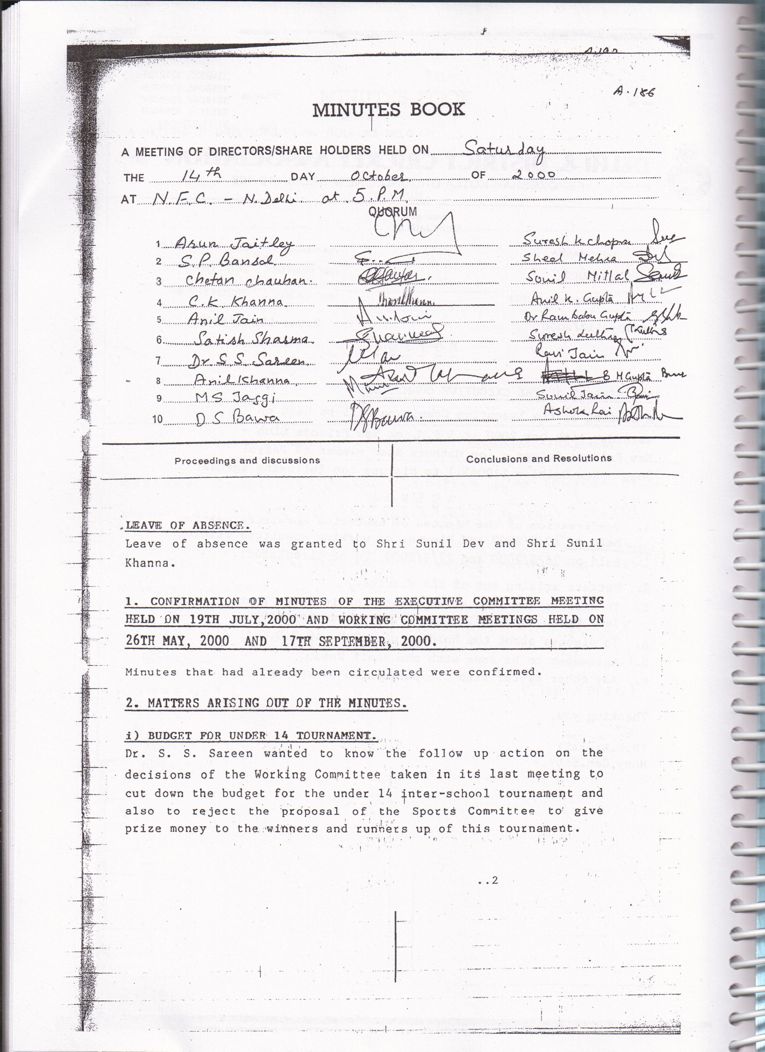 A.186
MINUTES BOOK
A MEETING OF DIRECTORS/SHARE HOLDERS HELD ON Saturday
THE 14th DAY October OF 2000
AT N.F.C. - N.Delhi at 5 P.M.
QUORUM
1 Arun Jaitley Suresh K Chopra
2 S.P. Bansal Sheel Mehra
3 Chetan Chauhan. Sunil Mittal
4 C.K. Khanna Anil K. Gupta
5 Anil Jain Dr Ram Babu Gupta
6 Satish Sharma Suresh
7 Dr. S.S. Sareen Ravi Jain
8 Anil Khanna M Gupta
9 MS Jaggi Sunil Jain
10 DS Bawa DSBawa. Ashok Rai
Proceedings and discussions Conclusions and Resolutions
LEAVE OF ABSENCE.
Leave of absence was granted to Shri Sunil Dev and Shri Sunil
Khanna.
1. CONFIRMATION OF MINUTES OF THE EXECUTIVE COMMITTEE MEETING
HELD ON 19TH JULY,2000 AND WORKING COMMITTEE MEETINGS HELD ON
26TH MAY, 2000 AND 17TH SEPTEMBER, 2000.
Minutes that had already been circulated were confirmed.
2. MATTERS ARISING OUT OF THE MINUTES.
i) BUDGET FOR UNDER 14 TOURNAMENT.
Dr. S. S. Sareen wanted to know the follow up action on the
decisions of the Working Committee taken in its last meeting to
cut down the budget for the under 14 inter-school tournament and
also to reject the proposal of the Sports Committee to give
prize money to the winners and runners up of this tournament.
..2